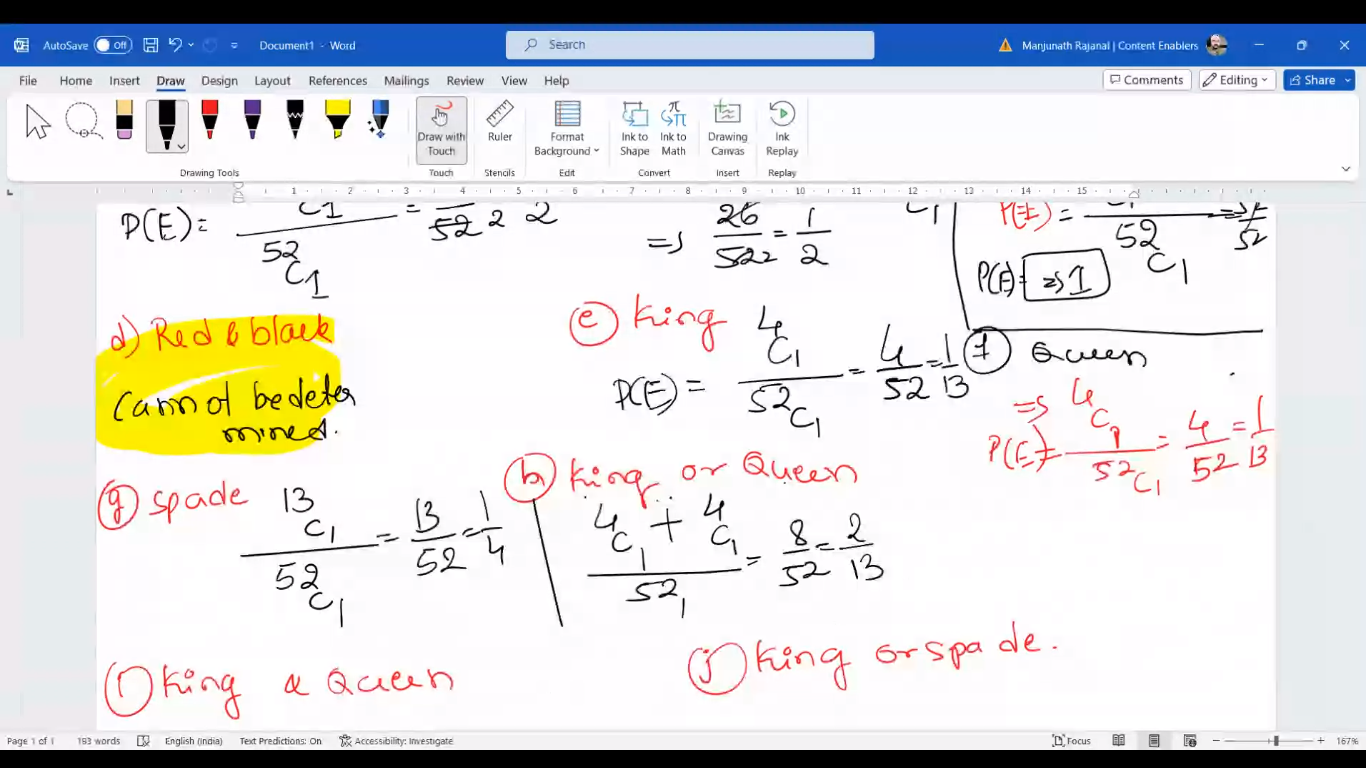 AutoSave Off Document1 - Word Search Manjunath Rajanal | Content Enablers
File Home Insert Draw Design Layout References Mailings Review View Help Comments Editing Share
Draw with Touch Ruler Format Background Ink to Shape Ink to Math Drawing Canvas Ink Replay
Drawing Tools Touch Stencils Edit Convert Insert Replay
1 2 3 4 5 6 7 8 9 10 11 12 13 15
P(E)= C1 / 52C1 = 52 2 2
=> 26/522 = 1/2
C1
P(E) = C1 / 52C1 => 52/52
P(E)= => 1
d) Red & black
Cannot be deter
mined.
e King
P(E) = 4C1 / 52C1 = 4/52 = 1/13
f Queen
=> P(E)= 4C1 / 52C1 = 4/52 = 1/13
g spade 13C1 / 52C1 = 13/52 = 1/4
h King or Queen
4C1 + 4C1 / 521 = 8/52 = 2/13
i King & Queen
j King or spade.
Page 1 of 1 193 words English (India) Text Predictions: On Accessibility: Investigate Focus 167%